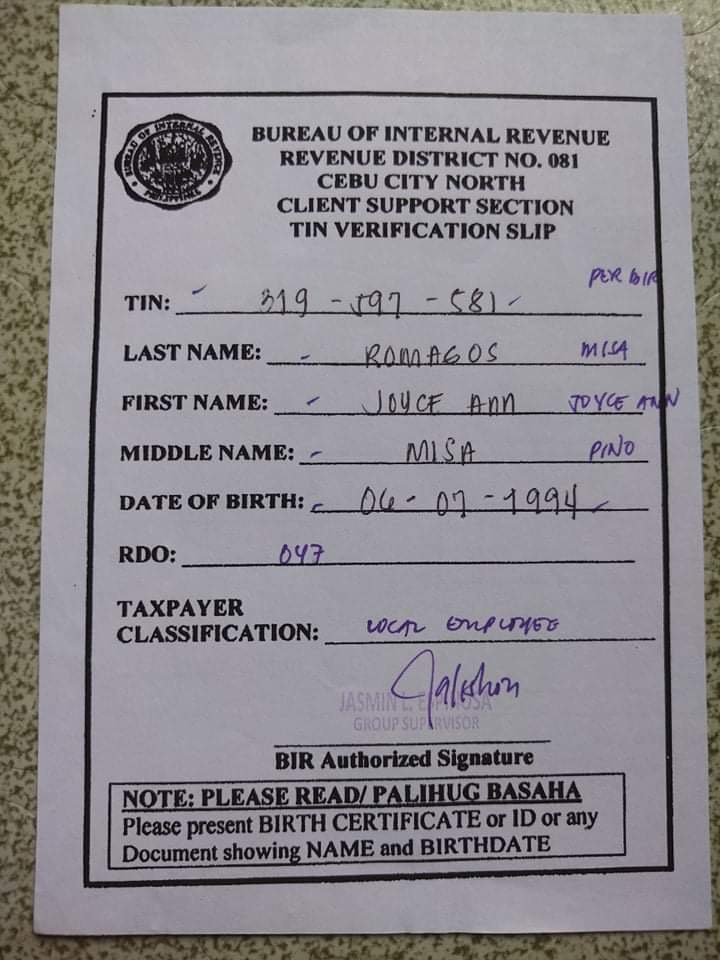 BUREAU OF INTERNAL REVENUE
PHILIPPINES
BUREAU OF INTERNAL REVENUE
REVENUE DISTRICT NO. 081
CEBU CITY NORTH
CLIENT SUPPORT SECTION
TIN VERIFICATION SLIP
PER BIR
TIN: 319-597-581
LAST NAME: ROMAGOS MISA
FIRST NAME: JOYCE ANN JOYCE ANN
MIDDLE NAME: MISA PINO
DATE OF BIRTH: 06-07-1994
RDO: 047
TAXPAYER
CLASSIFICATION: LOCAL EMPLOYEE
JASMIN L. ESPINOSA
GROUP SUPERVISOR
BIR Authorized Signature
NOTE: PLEASE READ/ PALIHUG BASAHA
Please present BIRTH CERTIFICATE or ID or any
Document showing NAME and BIRTHDATE